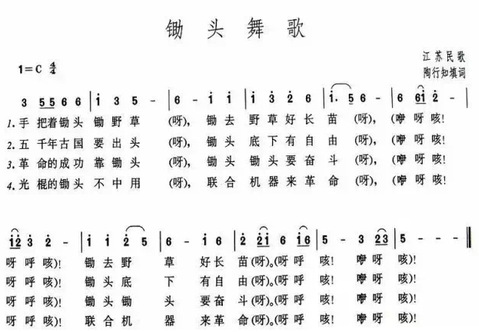 锄头舞歌
1=C 4/4
江苏民歌
陶行知填词
3 5 5 6 6 | i 3 5 - | 6 - i i | i 6 i 6 | i. 5 6 - | 6 6i 2 - |
1.手 把着锄头 锄野草 (呀), 锄去 野草好长 苗(呀), (咿呀咳!
2.五 千年古国 要出头 (呀), 锄头 底下有自 由(呀), (咿呀咳!
3.革 命的成功 靠锄头 (呀), 锄头 锄头要奋 斗(呀), (咿呀咳!
4.光 棍的锄头 不中用 (呀), 联合 机器来革 命(呀), (咿呀咳!
i2 3 2 - | i i i2 5 | 6 - i 6 | 2 2i 6 i6 | 5 - 3 23 | 5 - - - ‖
呀呼 咳)! 锄去野 草 好长 苗(呀)。(呀呼 咳! 咿呀 咳)!
呀呼 咳)! 锄头底 下 有自 由(呀)。(呀呼 咳! 咿呀 咳)!
呀呼 咳)! 锄头锄 头 要奋 斗(呀)。(呀呼 咳! 咿呀 咳)!
呀呼 咳)! 联合机 器 来革 命(呀)。(呀呼 咳! 咿呀 咳)!